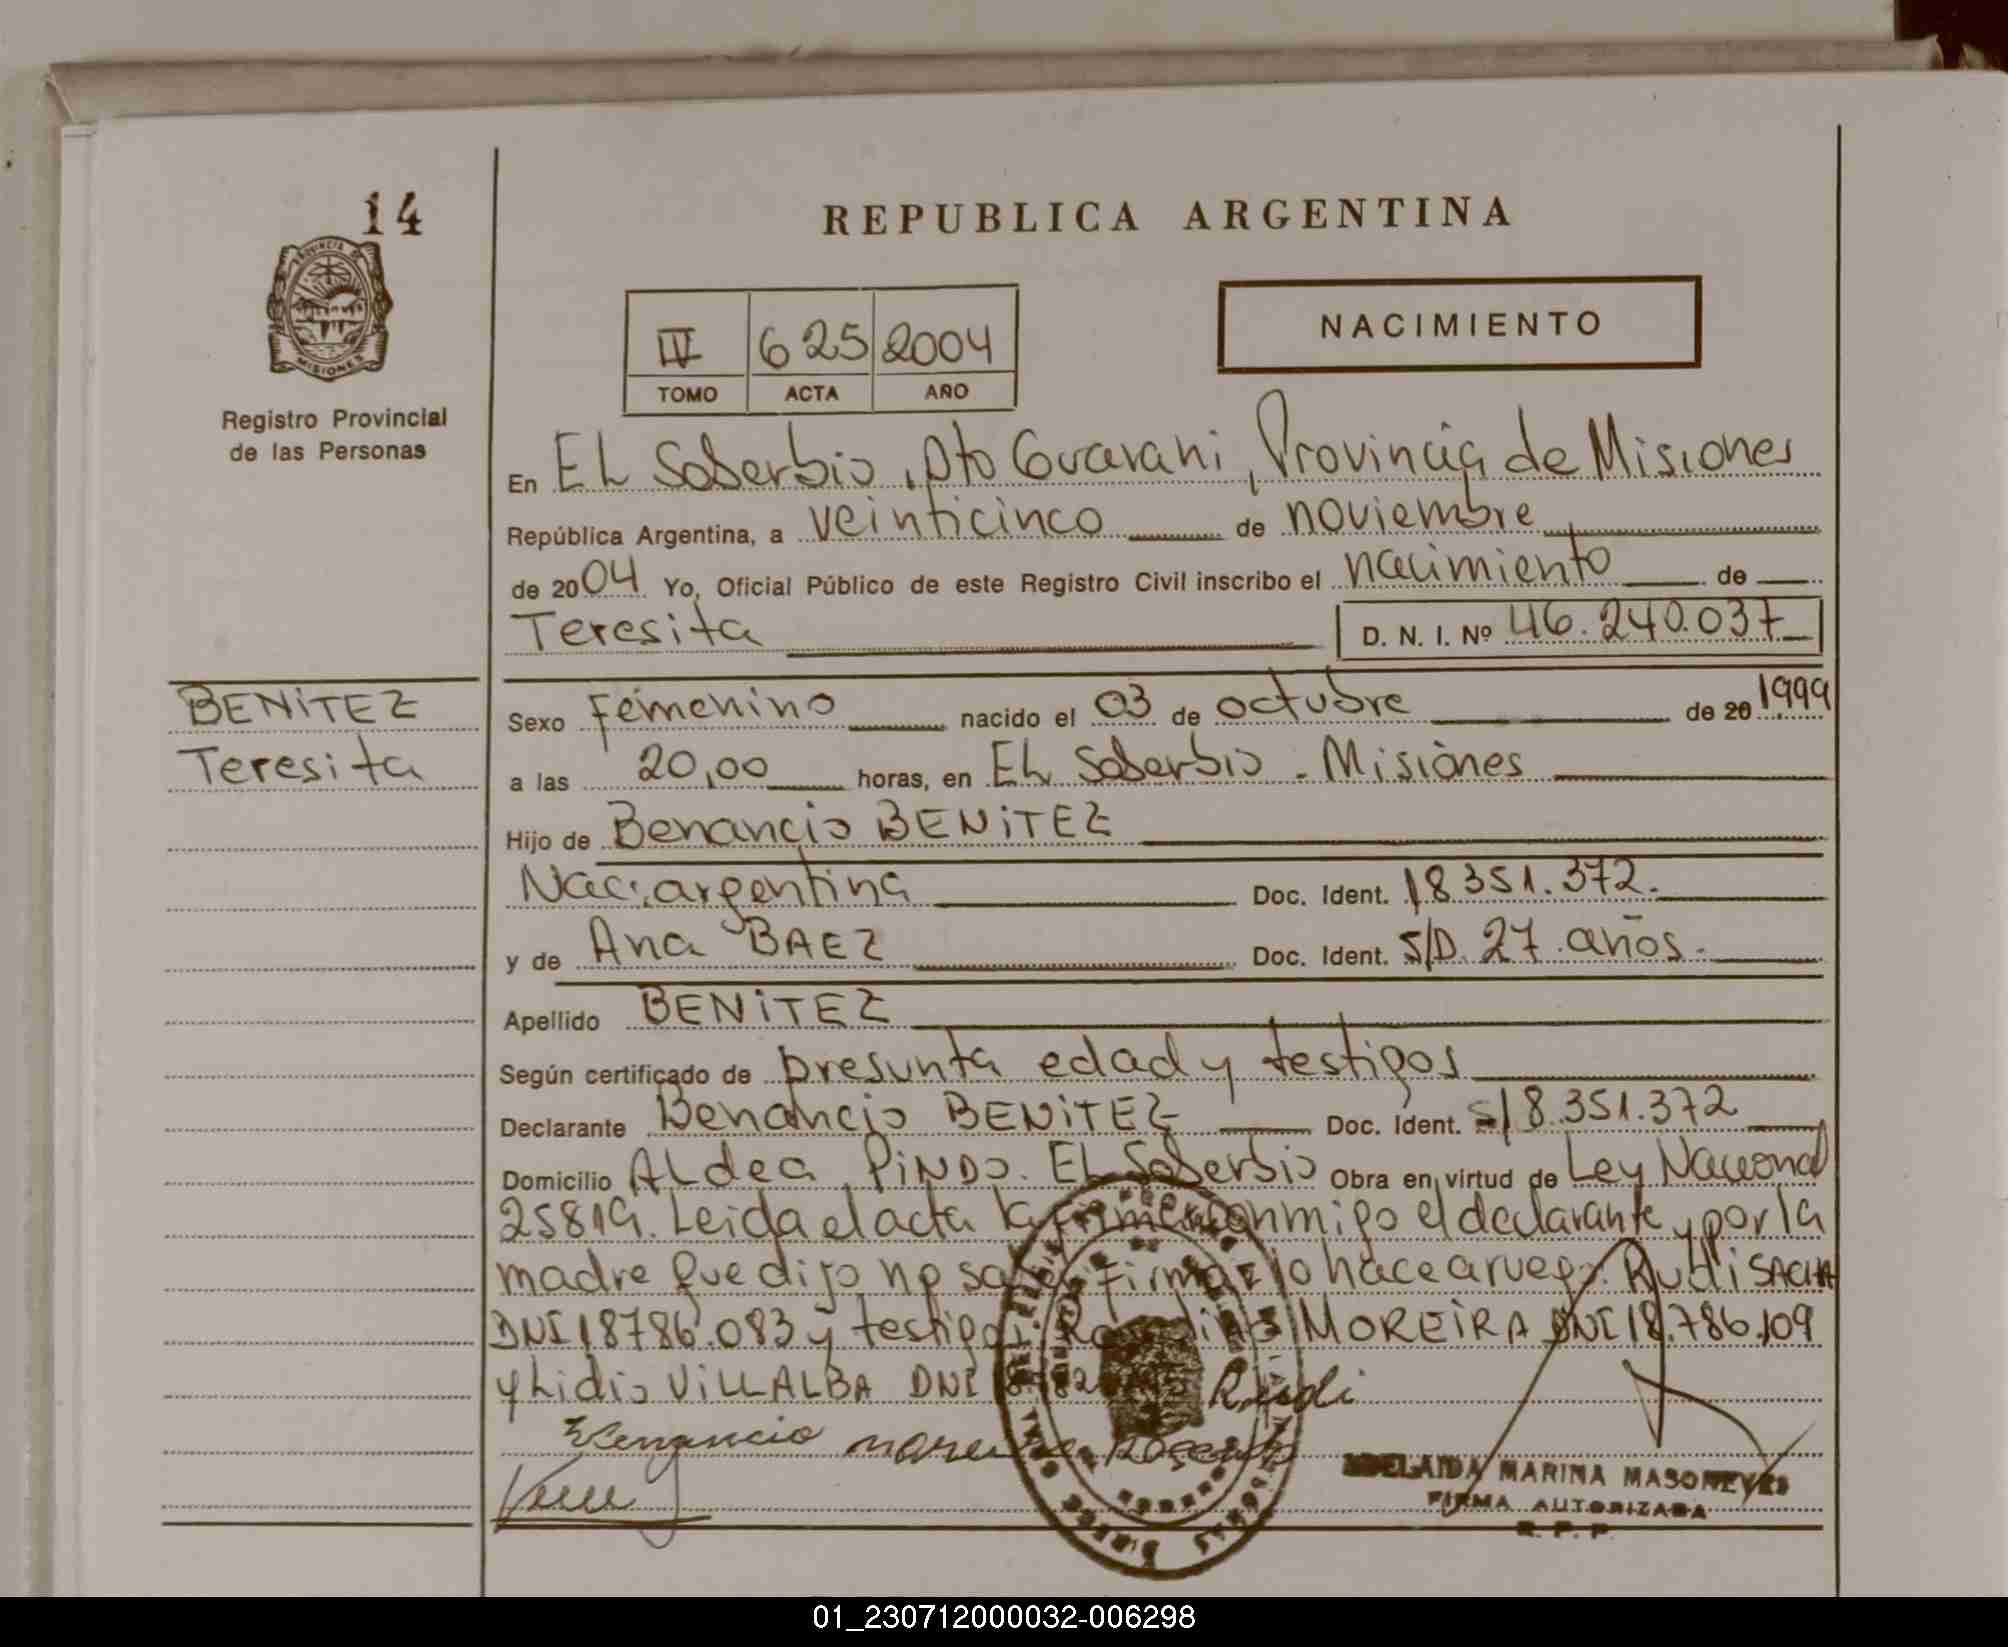 14
REPUBLICA ARGENTINA
PROVINCIA DE
MISIONES
Registro Provincial
de las Personas
IV 625 2004
TOMO ACTA AÑO
NACIMIENTO
En EL Soberbio, Dto Guarani, Provincia de Misiones
República Argentina, a veinticinco de noviembre
de 2004 Yo, Oficial Público de este Registro Civil inscribo el nacimiento de
Teresita D. N. I. Nº 46.240.037
BENITEZ
Teresita
Sexo Femenino nacido el 03 de octubre de 20 1999
a las 20,00 horas, en EL Soberbio - Misiones
Hijo de Benancio BENITEZ
Nac: argentina Doc. Ident. 18351.372.
y de Ana BAEZ Doc. Ident. S/D. 27 años.
Apellido BENITEZ
Según certificado de presunta edad y testigos
Declarante Benancio BENITEZ Doc. Ident. 18.351.372
Domicilio ALdea PiNDO. EL Soberbio Obra en virtud de Ley Nacional
25819. Leida el acta la firman conmigo el declarante y por la
madre que dijo no saber firmar lo hace a ruego. Rudi SACHA
DNI 18786.083 y testigos. MOREIRA DNI 18.786.109
y Lidio VILLALBA DNI Rudi
Benancio
ADELAIDA MARINA MASONEYES
FIRMA AUTORIZADA
R. P. P.
01_230712000032-006298